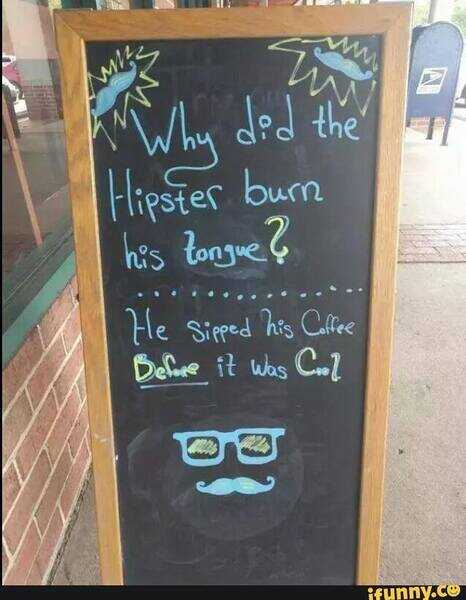 Why did the
Hipster burn
his tongue?
He Sipped his Coffee
Before it was Cool
ifunny.co